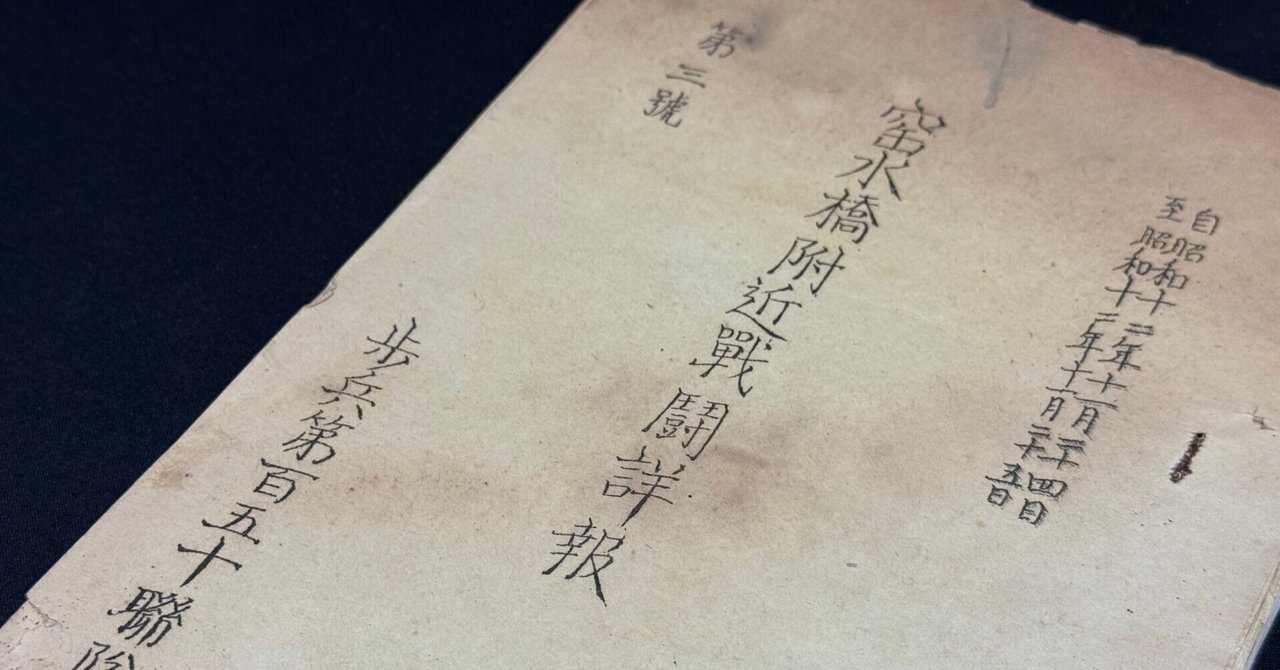 自昭和十二年十一月二十四日
至昭和十二年十一月二十五日
窑水橋附近戰鬪詳報
第三號
歩兵第百五十聯隊